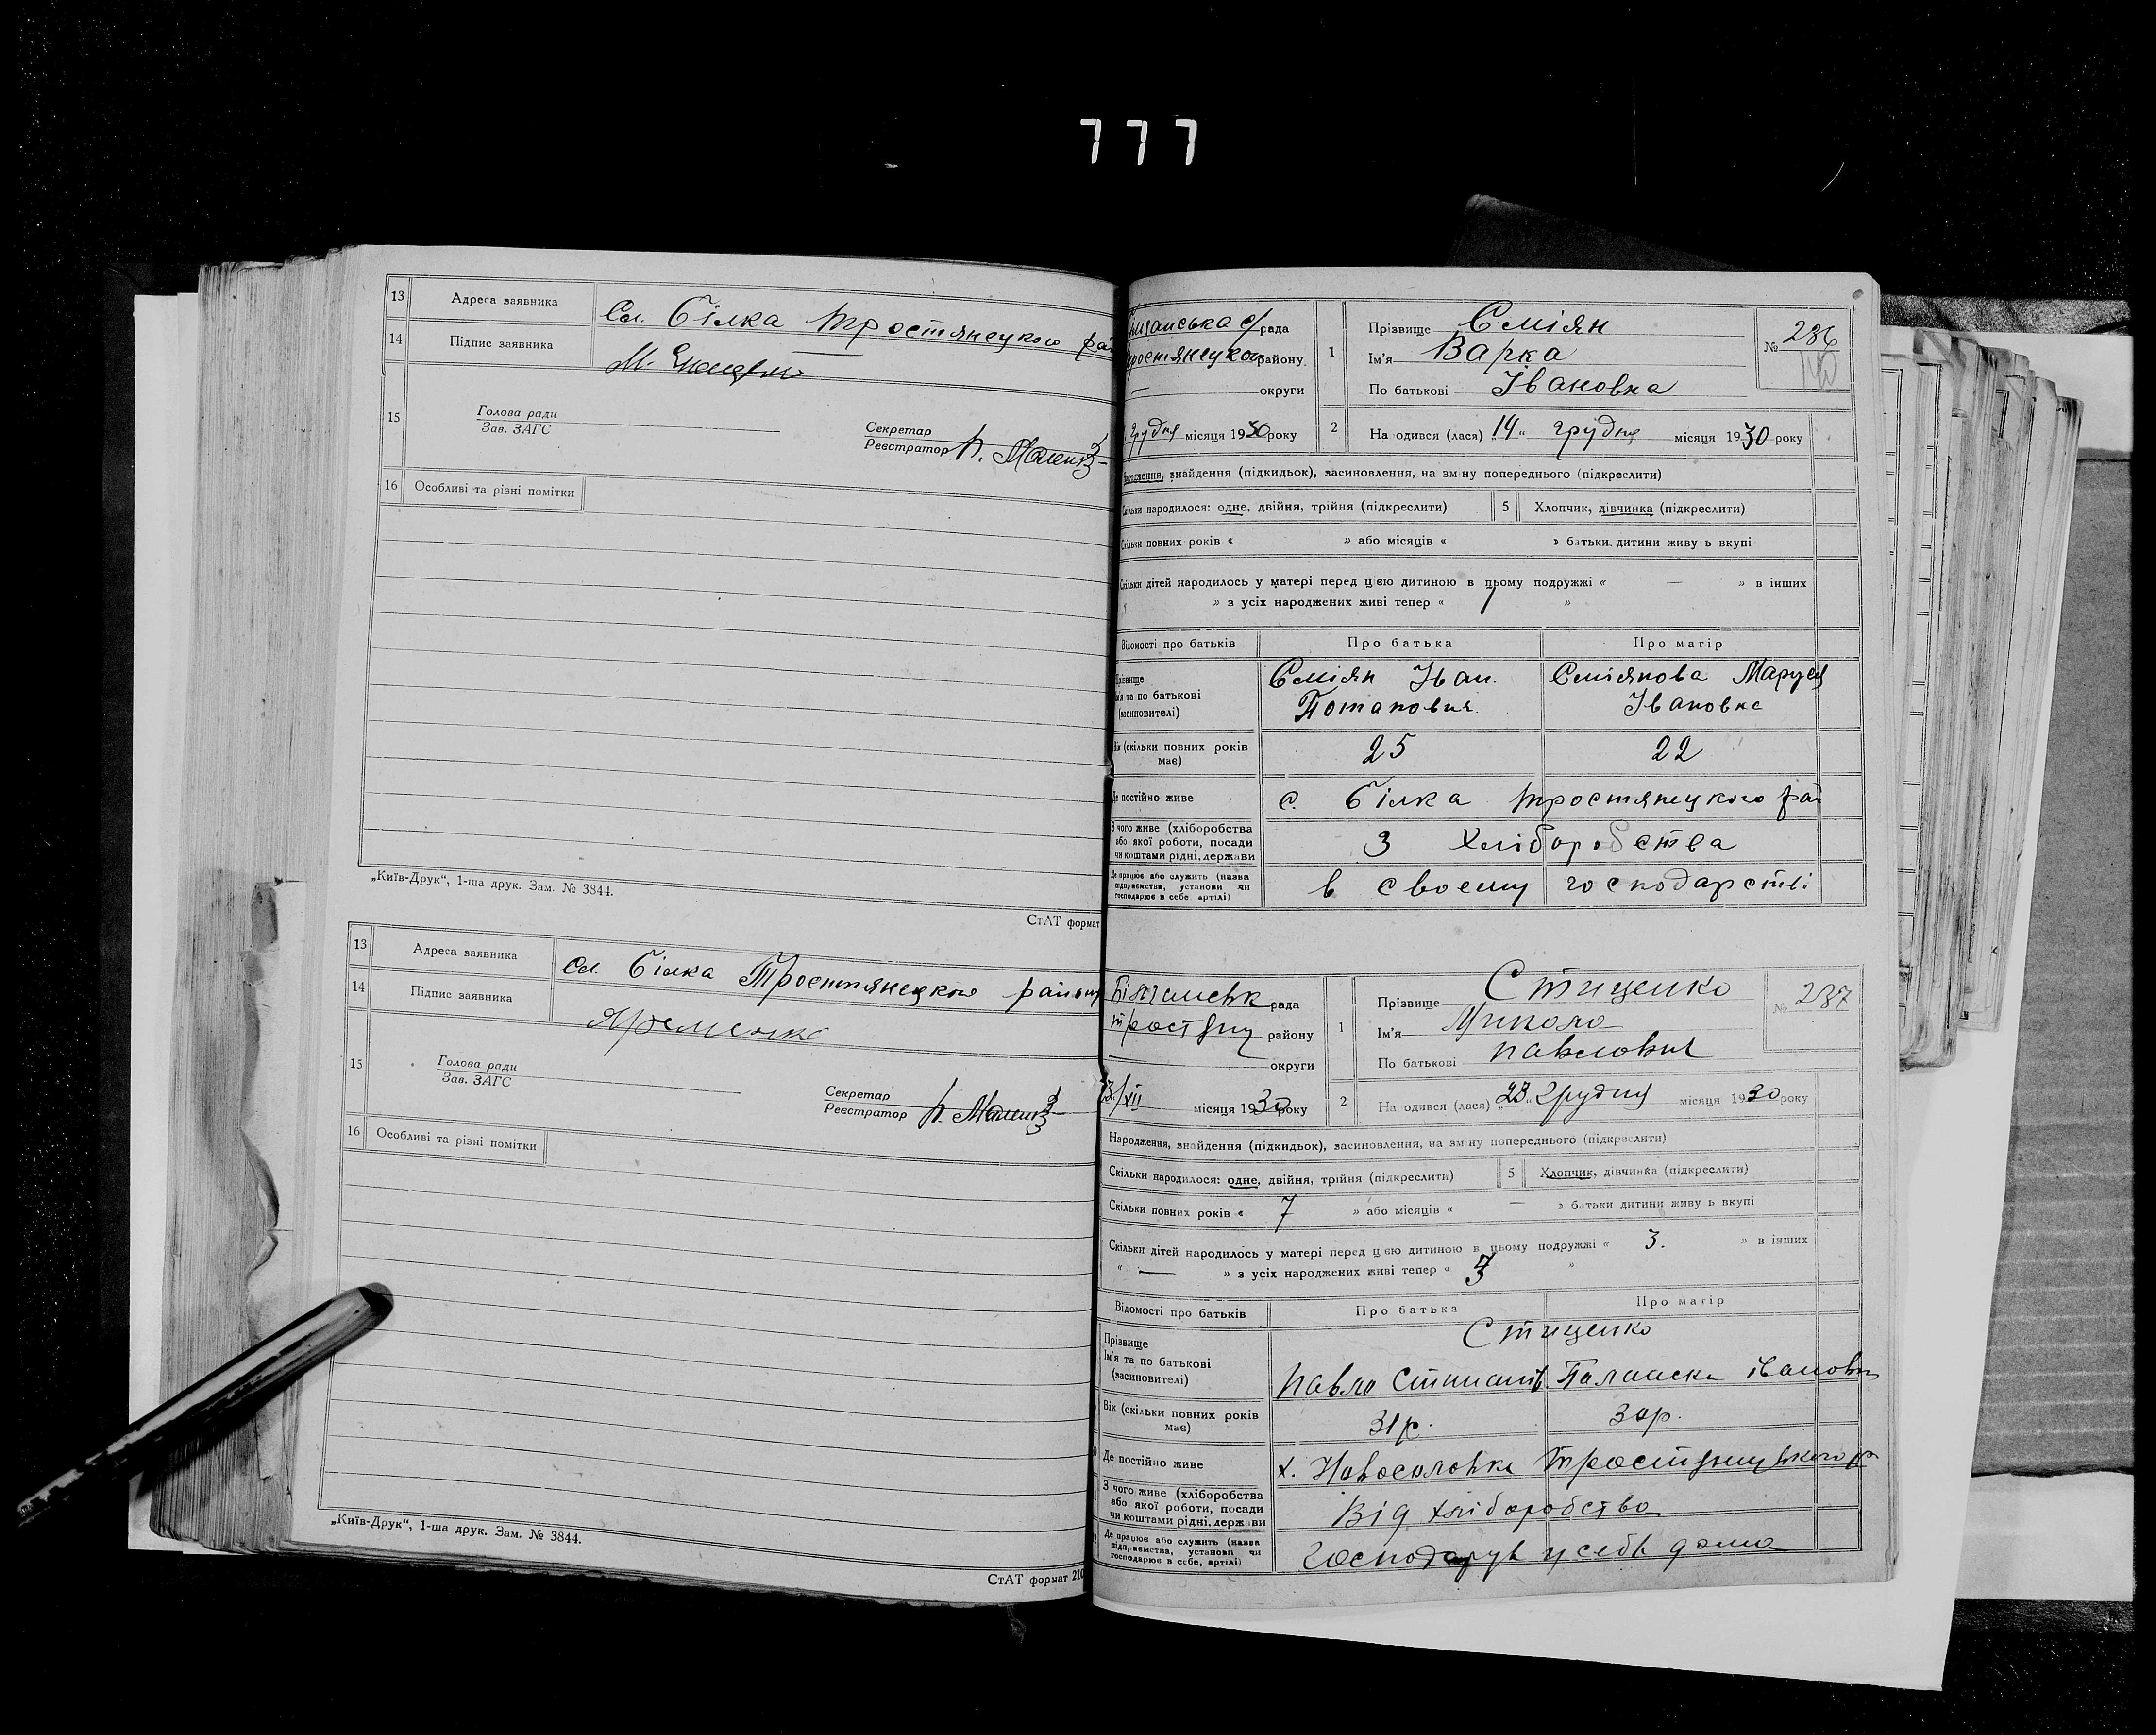 777
13 Адреса заявника Сл. Білка тростянецкого рай
14 Підпис заявника М.
15 Голова ради
Зав. ЗАГС
Секретар
Реєстратор П.
16 Особливі та різні помітки
„Київ-Друк“, 1-ша друк. Зам. № 3844.
СтАТ формат
13 Адреса заявника Сл. Білка Тростянецкого району
14 Підпис заявника Яременко
15 Голова ради
Зав. ЗАГС
Секретар
Реєстратор П.
16 Особливі та різні помітки
„Київ-Друк“, 1-ша друк. Зам. № 3844.
СтАТ формат 210
рада
району
— округи
грудня місяця 1930 року
1 Прізвище Сміян
Ім'я Варка
По батькові Івановна
№ 286
2 На одився (лася) 14 „ грудня місяця 1930 року
народження, знайдення (підкидьок), засиновлення, на зміну попереднього (підкреслити)
Скільки народилося: одне, двійня, трійня (підкреслити) 5 Хлопчик, дівчинка (підкреслити)
Скільки повних років « » або місяців « » батьки дитини живу ь вкупі
Скільки дітей народилось у матері перед цією дитиною в цьому подружжі « — » в інших
» з усіх народжених живі тепер « 1 »
Відомості про батьків Про батька Про матір
Прізвище
Ім'я та по батькові
(засиновителі)
Сміян Іван
Потапович
Сміянова Маруся
Івановна
Вік (скільки повних років
має) 25 22
Де постійно живе с. Білка тростянецкого рай
З чого живе (хліборобства
або якої роботи, посади
чи коштами рідні, держави
З Хліборобства
Де працює або служить (назва
підприємства, установи чи
господарює в себе, артілі)
в своему господарстві
рада
району
— округи
/XII місяця 1930 року
1 Прізвище Стиценко
Ім'я Микола
По батькові павлович
№ 287
2 На одився (лася) „23“ Грудня місяця 1930 року
Народження, знайдення (підкидьок), засиновлення, на зміну попереднього (підкреслити)
Скільки народилося: одне, двійня, трійня (підкреслити) 5 Хлопчик, дівчинка (підкреслити)
Скільки повних років « 7 » або місяців « — » батьки дитини живу ь вкупі
Скільки дітей народилось у матері перед цією дитиною в цьому подружжі « 3. » в інших
« — » з усіх народжених живі тепер « »
Відомості про батьків Про батька Про матір
Прізвище
Ім'я та по батькові
(засиновителі)
Стиценко
павло
Вік (скільки повних років
має) 31р. 30р.
Де постійно живе х. Новоселовка
З чого живе (хліборобства
або якої роботи, посади
чи коштами рідні, держави
Від хліборобства
Де працює або служить (назва
підприємства, установи чи
господарює в себе, артілі)
Господарує у себе дома